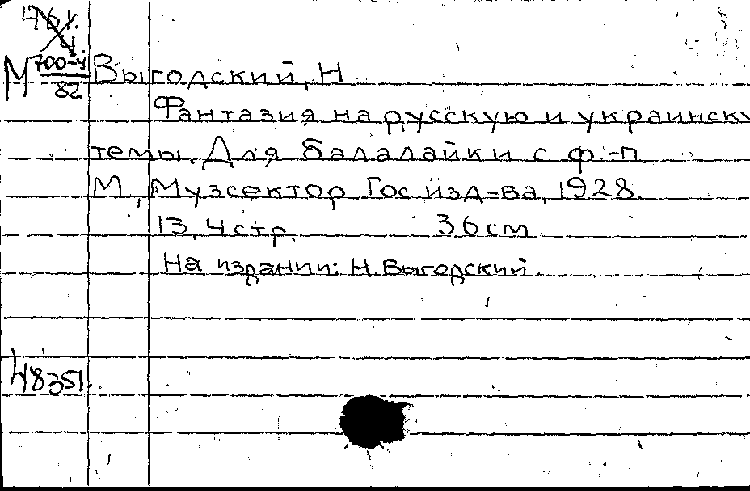 М 700-4
82
Выгодский, Н
Фантазия на русскую и украинску
темы. Для балалайки с ф.-п
М, Музсектор Госиздо-ва, 1928.
13, 4 стр. 36 см
На издании: Н. Выгодский.
48351